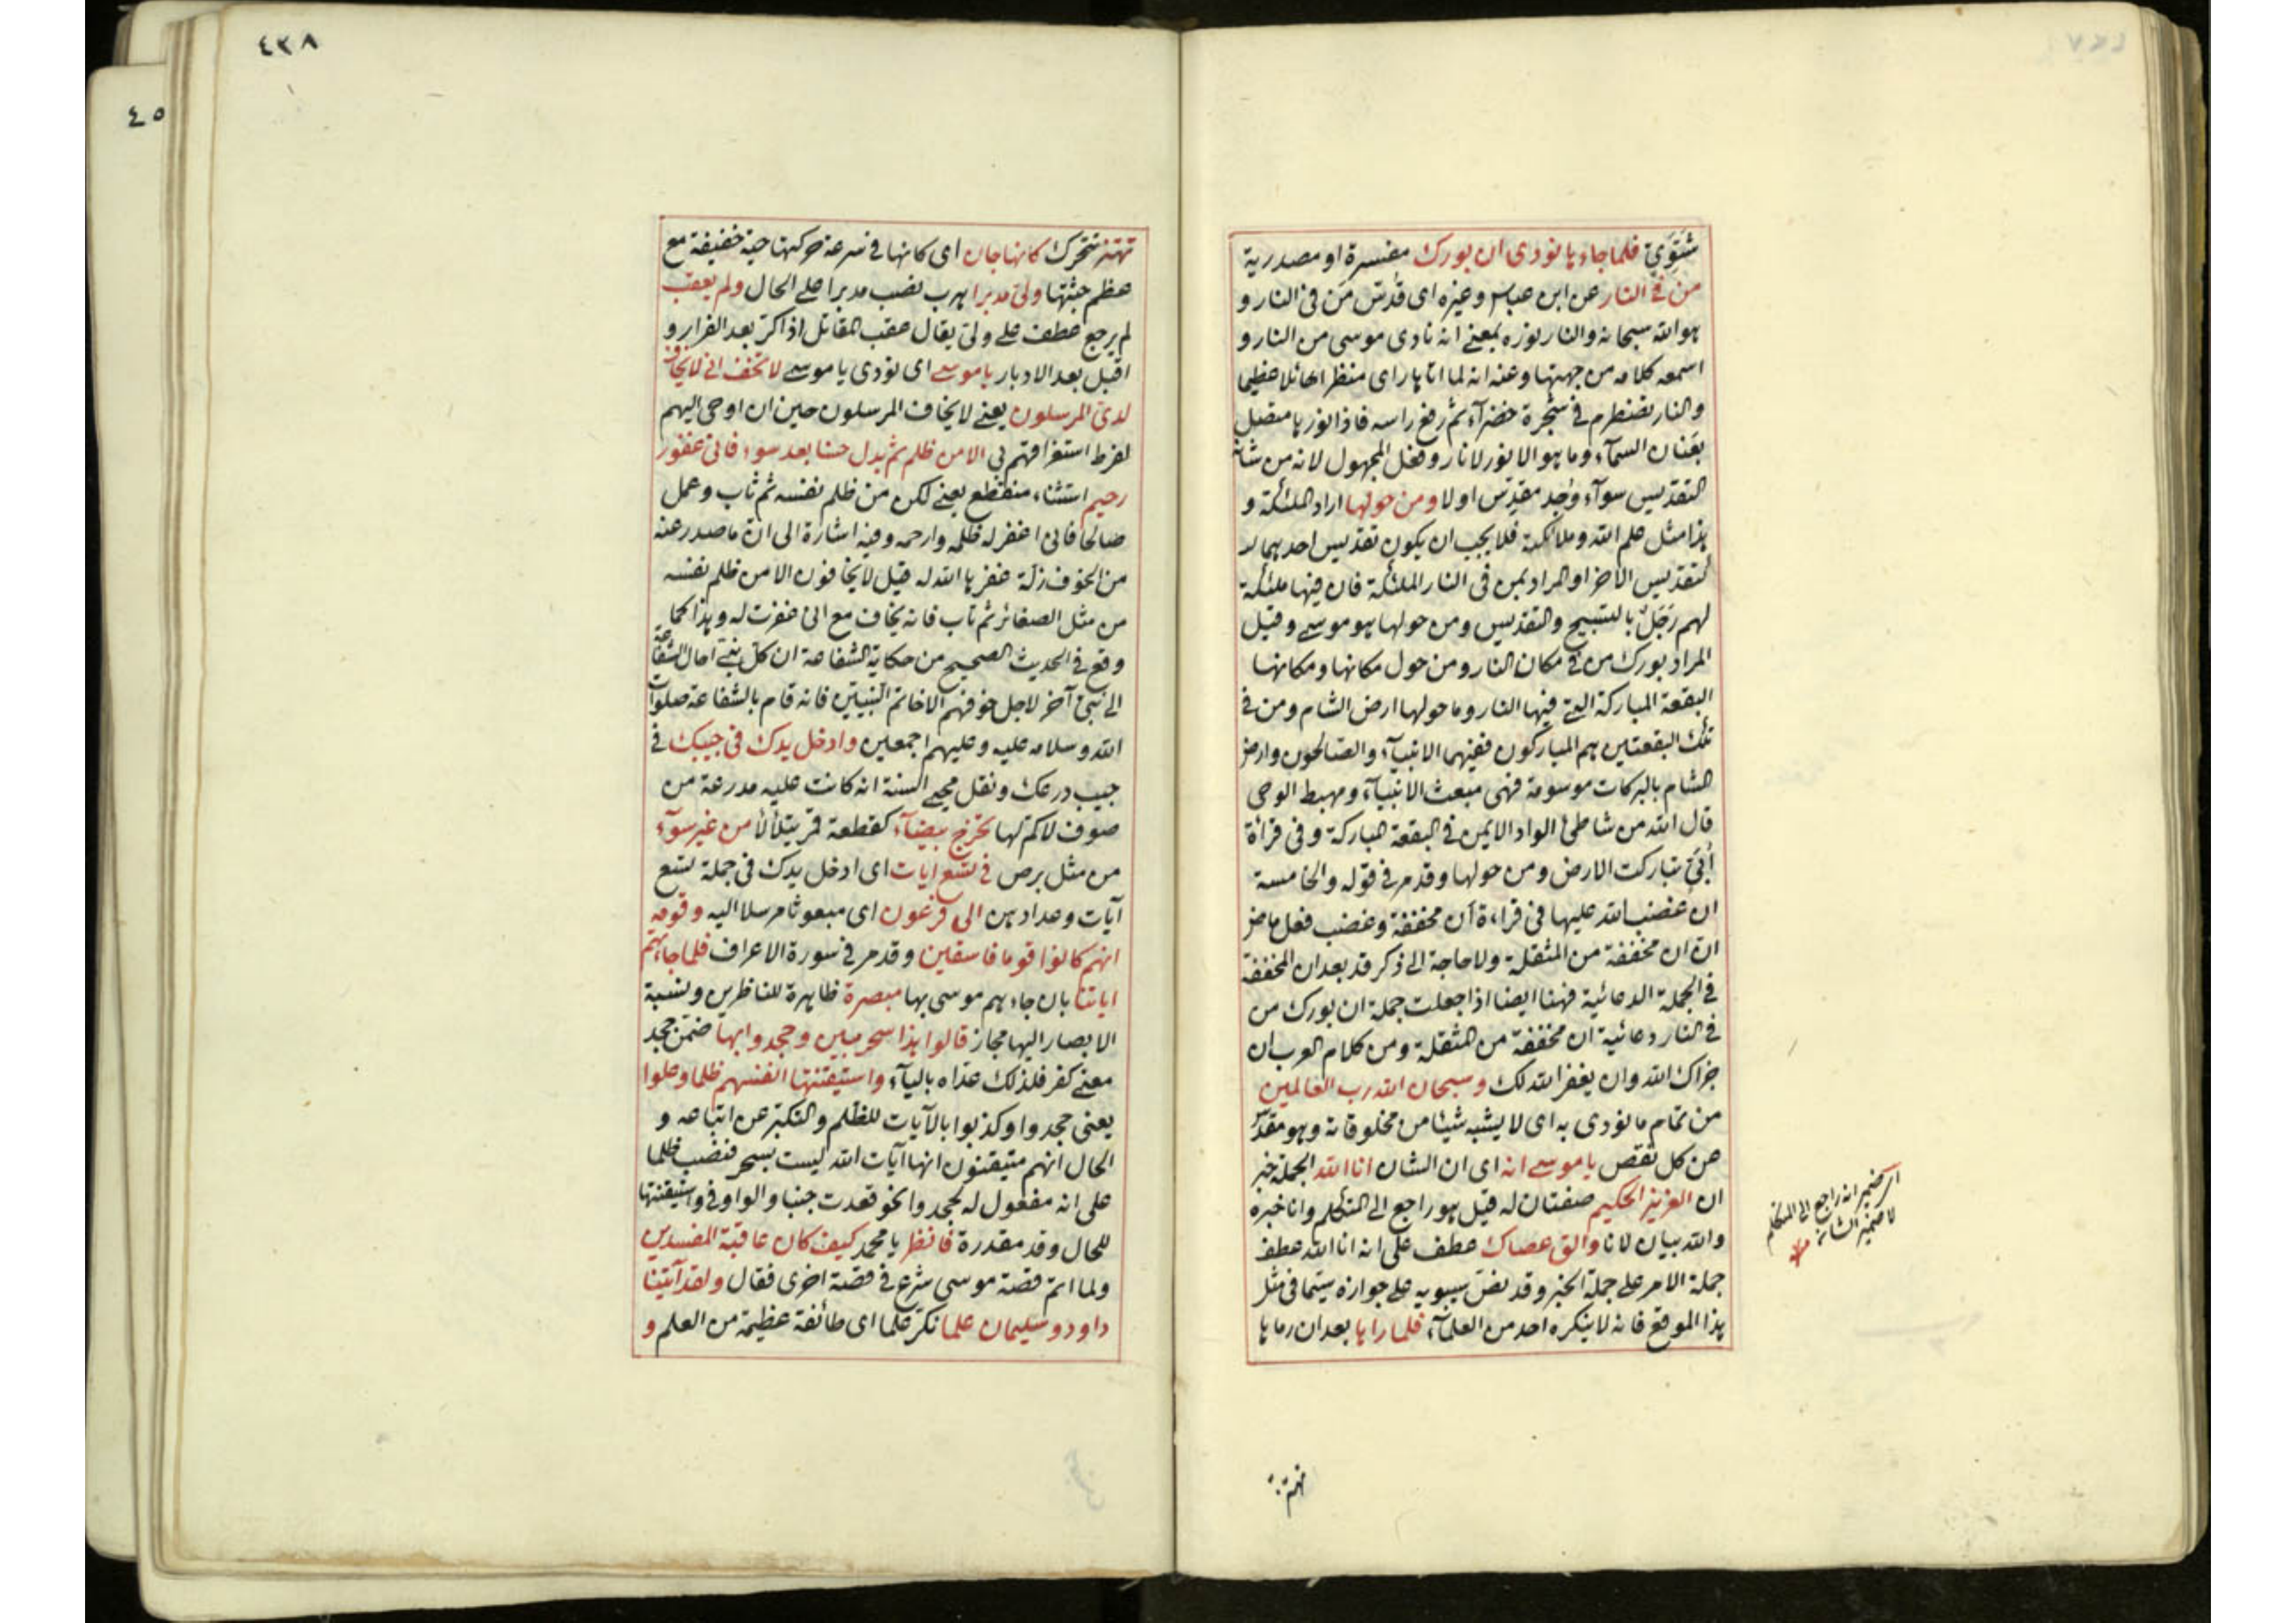 شَتَوِيّ فلما جاءها نودى ان بورك مفسرة او مصدرية
من فى النار عن ابن عباس وغيره اى قُدّس مَن فى النار و
هو الله سبحانه والنار نوره بمعنى انه نادى موسى من النار و
اسمعه كلامه من جهتها وعنه انه لما اتاها راى منظرا هائلا عظيما
والنار تضطرم فى شجرة خضرآء ثم رفع راسه فاذا نورها متصل
بعَنان السمآء وما هو الا نور لا نار وفعل المجهول لانه من شانه
التقديس سوآء وُجد مقدِّس او لا ومن حولها اراد الملئكة و
هذا مثل علم الله وملائكته فلا يجب ان يكون تقديس احدهما
كتقديس الاخر او المراد بمن فى النار الملئكة فان فيها ملئكة
لهم زَجَلٌ بالتسبيح والتقديس ومن حولها هو موسى وقيل
المراد بورك من فى مكان النار ومن حول مكانها ومكانها
البقعة المباركة التى فيها النار وما حولها ارض الشام ومن فى
تلك البقعتين هم المباركون ففيهما الانبيآء والصّالحون وارض
الشام بالبركات موسومة فهى مبعث الانبيآء ومهبط الوحى
قال الله من شاطئ الواد الايمن فى البقعة المباركة وفى قرأة
اُبَيّ تباركت الارض ومن حولها وقد مر فى قوله والخامسة
ان غضب الله عليها فى قراءة اَن مخففة وغضب فعل ماض
انّ ان مخففة من المثقلة ولا حاجة الى ذكر قد بعد ان المخففة
فى الجملة الدعائية فهنا ايضا اذا جعلت جملة ان بورك من
فى النار دعائية ان مخففة من المثقلة ومن كلام العرب ان
جزاك الله وان يغفر الله لك وسبحان الله رب العالمين
من تمام ما نودى به اى لا يشبه شيئا من مخلوقاته وهو مقدّس
عن كل نقص يا موسى انه اى ان الشان انا الله الجملة خبر
ان العزيز الحكيم صفتان له قيل هو راجع الى المتكلم وانا خبره
والله بيان لانا والق عصاك عطف على انه انا الله عطف
جملة الامر على جملة الخبر وقد نصّ سيبويه على جوازه سيّما فى مثل
هذا الموقع فانه لا ينكره احد من العلمآء فلما راها بعد ان رماها
ضمير انه راجع الى المتكلم
لا ضمير الشان منه
تهتز
٤٣٨
٤٥
تهتز تتحرك كانها جان اى كانها فى سرعة حركتها حية خفيفة مع
عظم جثتها ولى مدبرا هرب نصب مدبرا على الحال ولم يعقب
لم يرجع عطف على ولّى يقال عقب المقاتل اذا كرّ بعد الفرار و
اقبل بعد الادبار يا موسى اى نودى يا موسى لا تخف انى لا يخاف
لدىّ المرسلون يعنى لا يخاف المرسلون حين ان اوحى اليهم
لفرط استغراقهم بى الا من ظلم ثم بدل حسنا بعد سوء فانى غفور
رحيم استثناء منقطع يعنى لكن من ظلم نفسه ثم تاب وعمل
صالحا فانى اغفر له ظلمه وارحمه وفيه اشارة الى انّ ما صدر عنه
من الخوف زلّة غفرها الله له قيل لا يخافون الا من ظلم نفسه
من مثل الصغائر ثم تاب فانه يخاف مع انى غفرت له وهذا كما
وقع فى الحديث الصحيح من حكاية الشفاعة ان كلّ نبىّ احال الشفاعة
الى نبىّ آخر لاجل خوفهم الا خاتم النبيّين فانه قام بالشفاعة صلوات
الله وسلامه عليه وعليهم اجمعين وادخل يدك فى جيبك فى
جيب درعك ونقل محيى السنة انه كانت عليه مدرعة من
صوف لا كمّ لها تخرج بيضآء كقطعة قمر يتلألأ من غير سوآء
من مثل برص فى تسع ايات اى ادخل يدك فى جملة تسع
آيات وعدادهن الى فرعون اى مبعوثا مرسلا اليه وقومه
انهم كانوا قوما فاسقين وقد مر فى سورة الاعراف فلما جاءتهم
اياتنا بان جاءهم موسى بها مبصرة ظاهرة للناظرين ونسبة
الابصار اليها مجاز قالوا هذا سحر مبين وجحدوا بها ضمّن جحد
معنى كفر فلذلك عدّاه باليآء واستيقنتها انفسهم ظلما وعلوا
يعنى جحدوا وكذبوا بالآيات للظلم والتكبر عن اتباعه و
الحال انهم متيقنون انها آيات الله ليست بسحر فنصب ظلما
على انه مفعول له لجحدوا نحو قعدت جبنا والواو فى واستيقنتها
للحال وقد مقدرة فانظر يا محمد كيف كان عاقبة المفسدين
ولما اتم قصة موسى شرع فى قصة اخرى فقال ولقد آتينا
داود وسليمان علما نكّر علما اى طائفة عظيمة من العلم و